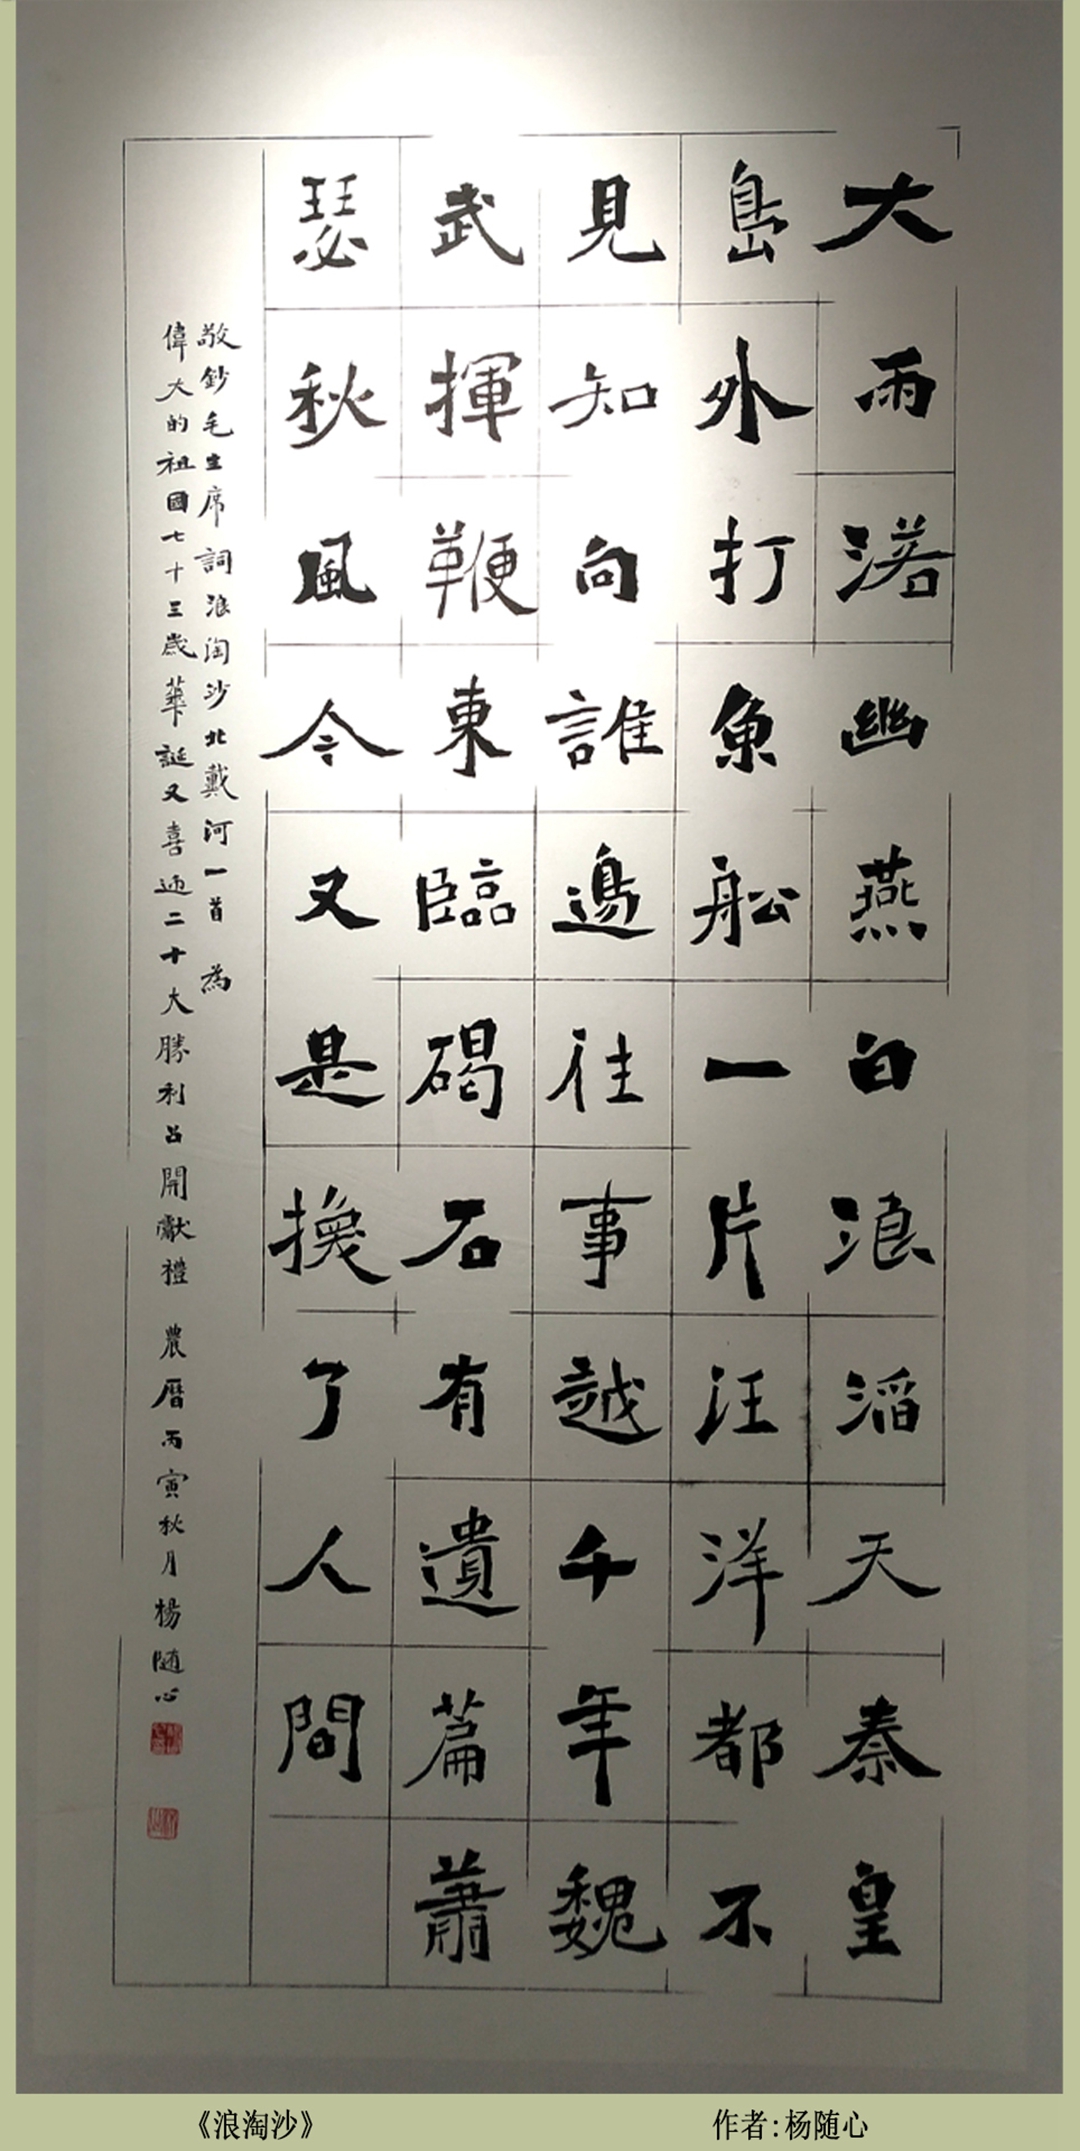 大雨渃幽燕白浪滔天秦皇
島外打魚舩一片汪洋都不
見知向誰邊往事越千年魏
武揮鞭東臨碣石有遺篇蕭
瑟秋風今又是換了人間
敬鈔毛主席詞浪淘沙北戴河一首 為
偉大的祖國七十三歲華誕又喜迎二十大勝利召開獻禮 農曆丙寅秋月楊随心
《浪淘沙》
作者:杨随心